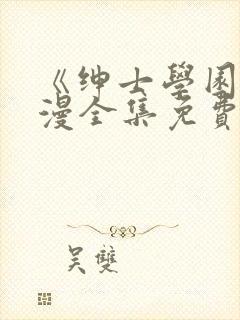 《绅士學園
漫全集免費
吴雙